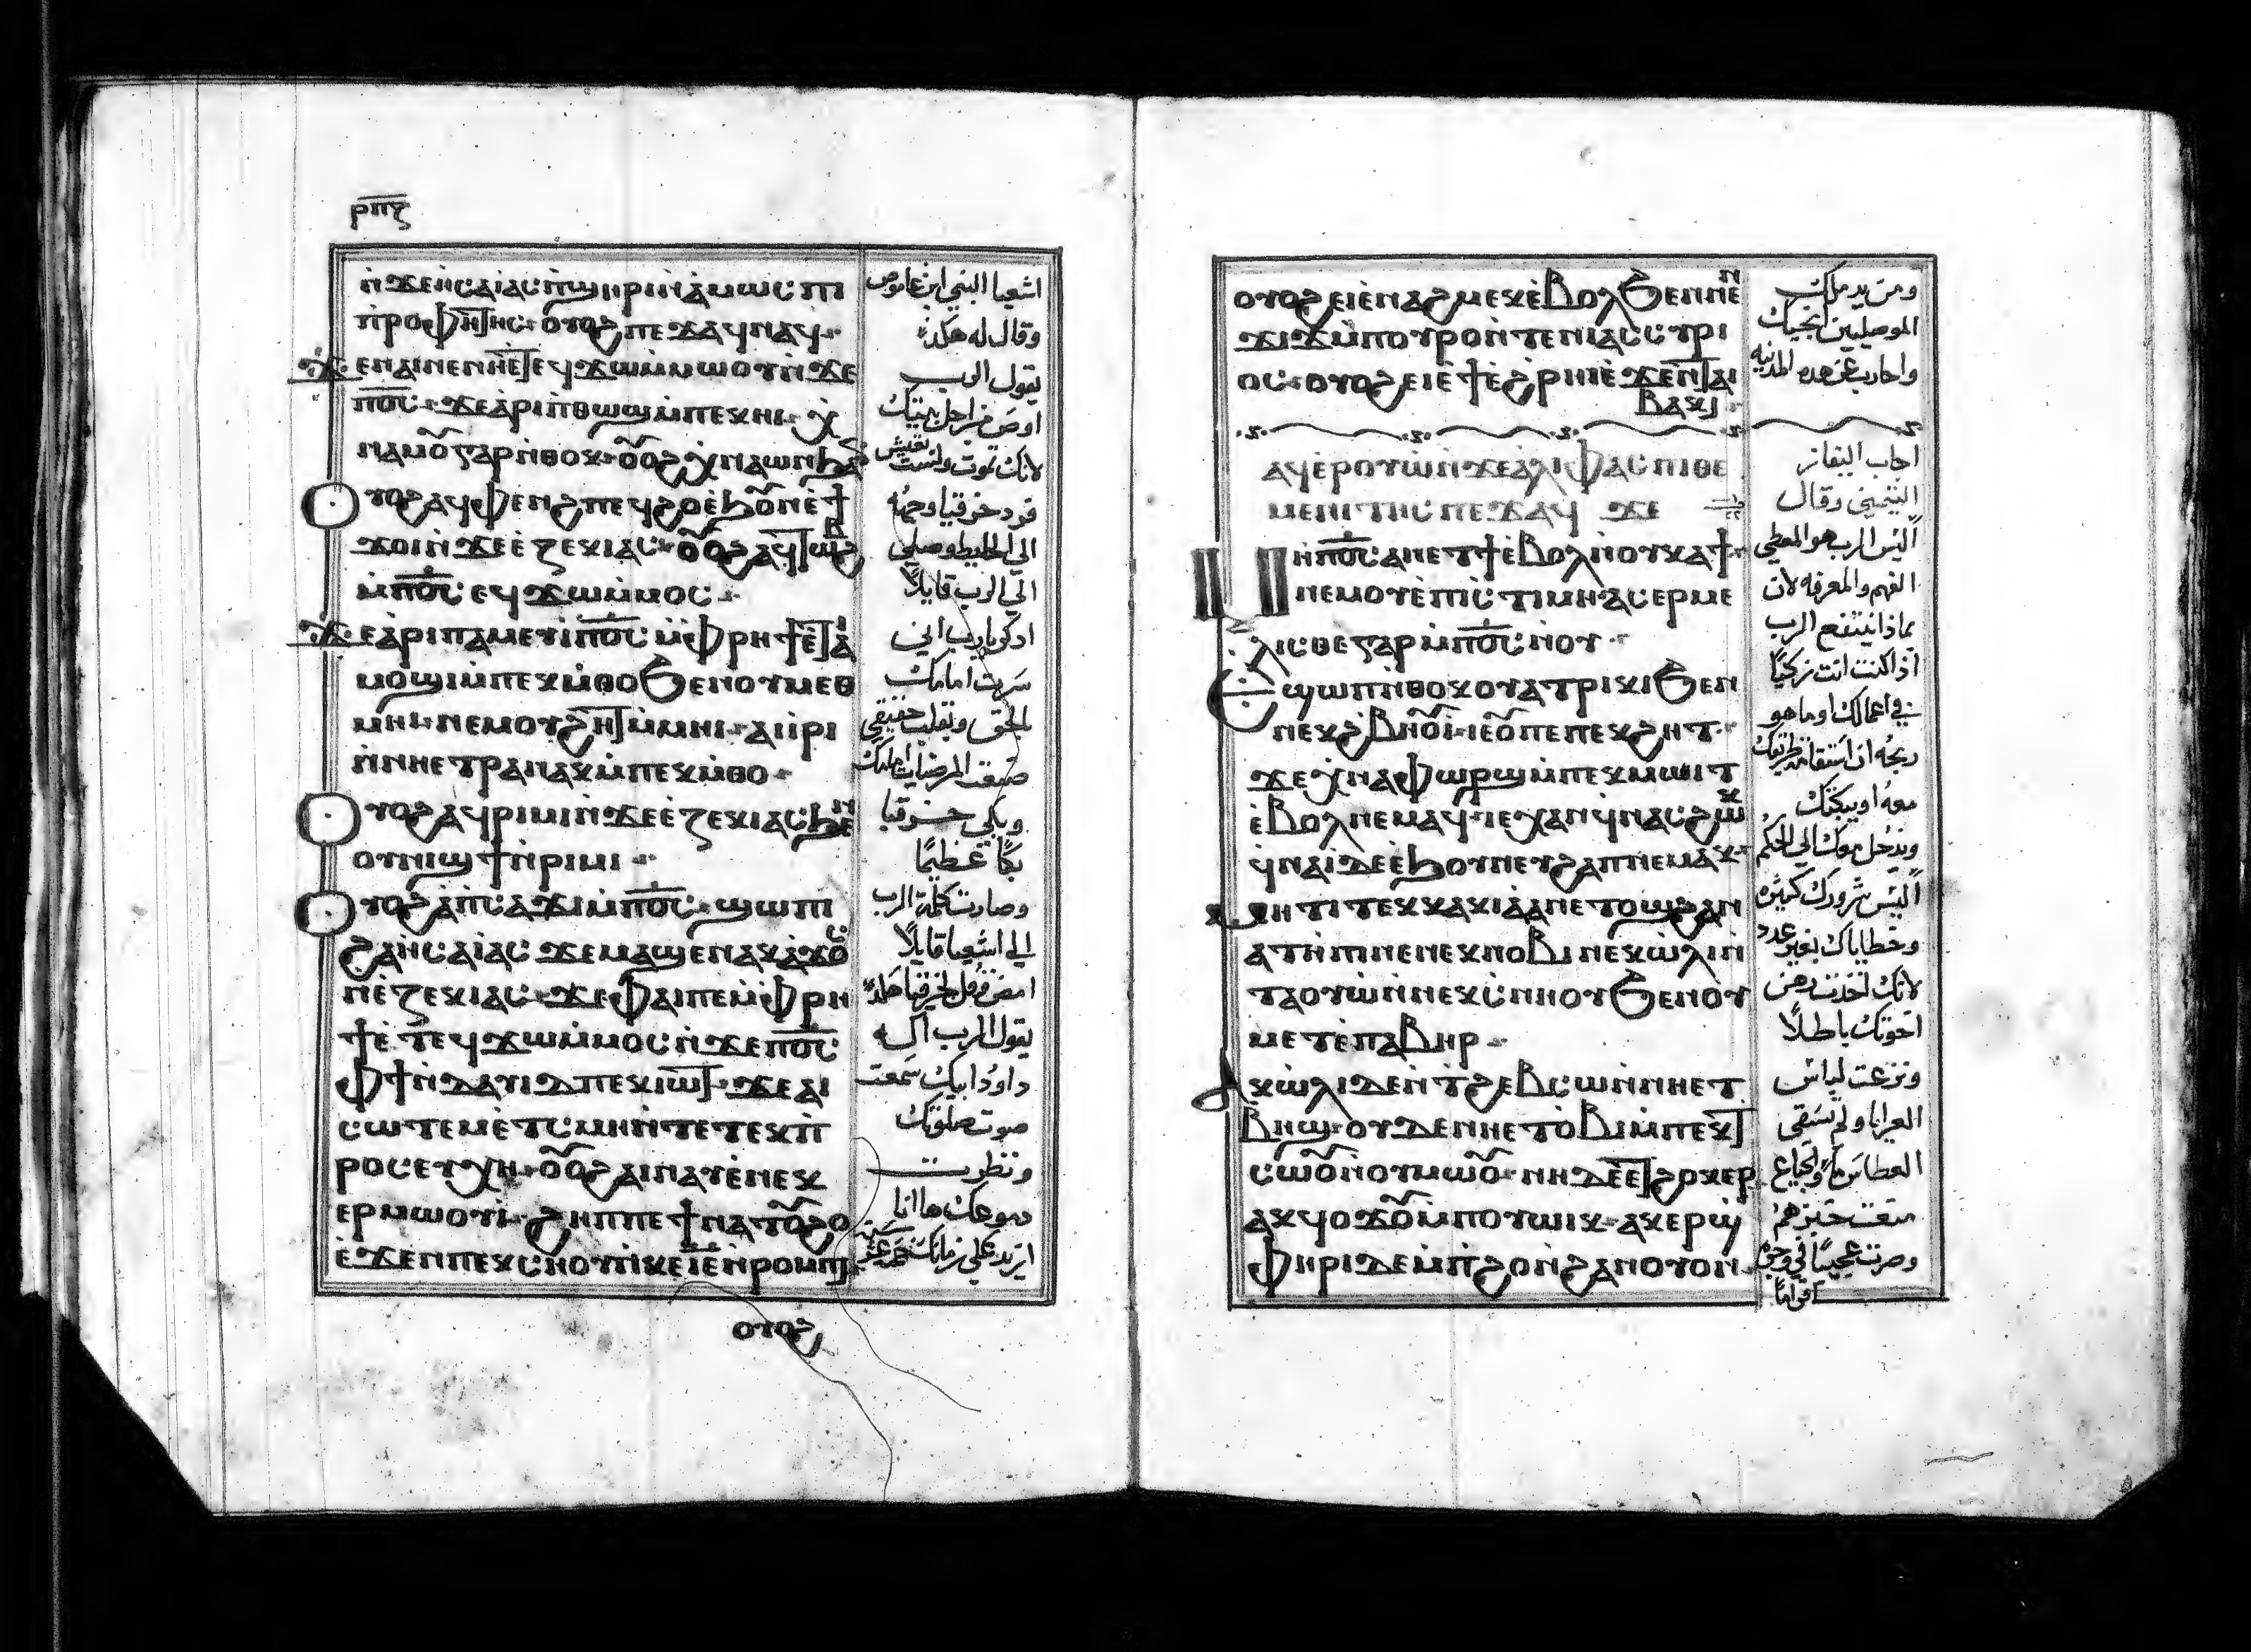 ⲣⲡⲋ
ⲛ̀ϫⲉⲏ̀ⲥⲁⲓⲁⲥ ⲡ̀ϣⲏⲣⲓ ⲛ̀ⲁ̀ⲙⲱⲥ ⲡⲓ
ⲡⲣⲟⲫⲏⲧⲏⲥ ⲟⲩⲟϩ ⲡⲉϫⲁϥ ⲛⲁϥ
ϫⲉ ⲛⲁⲓ ⲛⲉ ⲛⲏⲉ̀ⲧⲉϥϫⲱ ⲙ̀ⲙⲱⲟⲩ ⲛ̀ϫⲉ
ⲡ̅ⲟ̅ⲥ̅ ϫⲉ ⲁ̀ⲣⲓⲡ̀ⲑⲱϣ ⲙ̀ⲡⲉⲕⲏⲓ ⲭ̀
ⲛⲁⲙⲟⲩ ⲅⲁⲣ ⲛ̀ⲑⲟⲕ ⲟⲩⲟϩ ⲭ̀ⲛⲁⲱⲛϧ ⲁⲛ
ⲟⲩⲟϩ ⲁϥⲫⲉⲛϩ ⲡⲉϥϩⲟ ⲉ̀ϧⲟⲩⲛ ⲉ̀ϯ
ϫⲟⲓ ⲛ̀ϫⲉ ⲉ̀ⲍⲉⲕⲓⲁⲥ ⲟⲩⲟϩ ⲁϥⲧⲱⲃϩ
ⲙ̀ⲡ̅ⲟ̅ⲥ̅ ⲉϥϫⲱ ⲙ̀ⲙⲟⲥ
ϫⲉ ⲁ̀ⲣⲓⲡⲁⲙⲉⲩⲓ ⲡ̅ⲟ̅ⲥ̅ ⲙ̀ⲫⲣⲏϯ ⲉ̀ⲧⲁⲓ
ⲙⲟϣⲓ ⲙ̀ⲡⲉⲕⲙ̀ⲑⲟ ϧⲉⲛ ⲟⲩⲙⲉⲑ
ⲙⲏⲓ ⲛⲉⲙ ⲟⲩϩⲏⲧ ⲙ̀ⲙⲏⲓ ⲁⲓⲓ̀ⲣⲓ
ⲛ̀ⲛⲏⲉⲧⲣⲁⲛⲁⲕ ⲙ̀ⲡⲉⲕⲙ̀ⲑⲟ
ⲟⲩⲟϩ ⲁϥⲣⲓⲙⲓ ⲛ̀ϫⲉ ⲉ̀ⲍⲉⲕⲓⲁⲥ ϧⲉⲛ
ⲟⲩⲛⲓϣϯ ⲛ̀ⲣⲓⲙⲓ
ⲟⲩⲟϩ ⲁ̀ ⲡ̀ⲥⲁϫⲓ ⲙ̀ⲡ̅ⲟ̅ⲥ̅ ϣⲱⲡⲓ
ϩⲁ ⲏ̀ⲥⲁⲓⲁⲥ ϫⲉ ⲙⲁϣⲉⲛⲁⲕ ⲁ̀ϫⲟⲥ
ⲛ̀ⲉ̀ⲍⲉⲕⲓⲁⲥ ϫⲉ ⲫⲁⲓ ⲡⲉ ⲙ̀ⲫⲣⲏ
ϯ ⲉ̀ⲧⲉϥϫⲱ ⲙ̀ⲙⲟⲥ ⲛ̀ϫⲉ ⲡ̅ⲟ̅ⲥ̅
ⲫϯ ⲛ̀ⲇⲁⲩⲓⲇ ⲡⲉⲕⲓⲱⲧ ϫⲉ ⲁⲓ
ⲥⲱⲧⲉⲙ ⲉ̀ⲧ̀ⲥⲙⲏ ⲛ̀ⲧⲉ ⲧⲉⲕⲡ̀
ⲣⲟⲥⲉⲩⲭⲏ ⲟⲩⲟϩ ⲁⲓⲛⲁⲩ ⲉ̀ⲛⲉⲕ
ⲉⲣⲙⲱⲟⲩⲓ ϩⲏⲡⲡⲉ ϯⲛⲁⲧⲟⲩϩⲟ
ⲉ̀ϫⲉⲛ ⲡⲉⲕⲥⲏⲟⲩ ⲛ̀ⲕⲉⲓ̅ⲉ̅ ⲛ̀ⲣⲟⲙⲡⲓ
ⲟⲩⲟϩ
اشعيا النبي ابن عاموص
وقال له هكذا
يقول الرب
اوص من اجل بيتك
لانك تموت ولست تعيش
فرد حزقيا وجهه
الي الحايط وصلي
الي الرب قايلاً
اذكر يارب اني
سرت امامك
بالحق وبقلب حقيقي
صنعت المرضيات امامك
وبكي حزقيا
بكاً عظيماً
وصارت كلمة الرب
الي اشعيا قايلاً
امض وقل لحزقيا هكذا
يقول الرب اله
داوود ابيك سمعت
صوت صلوتك
ونظرت
دموعك ها انا
ازيد علي زمانك خمسة عشر سنه
ⲟⲩⲟϩ ⲉⲓⲉ̀ⲛⲁϩⲙⲉⲕ ⲉ̀ⲃⲟⲗ ϧⲉⲛ ⲛⲉⲛ
ϫⲓϫ ⲙ̀ⲡⲟⲩⲣⲟ ⲛ̀ⲧⲉ ⲛⲓⲁⲥⲥⲩⲣⲓ
ⲟⲥ ⲟⲩⲟϩ ⲉⲓⲉ̀ϯ ⲉ̀ϩⲣⲏⲓ ⲉ̀ϫⲉⲛ ⲧⲁⲓ
ⲃⲁⲕⲓ
ⲁϥⲉ̀ⲣⲟⲩⲱ̀ ⲛ̀ϫⲉ ⲁ̀ⲗⲓⲫⲁⲥ ⲡⲓⲑⲉ
ⲙⲉⲛⲓⲧⲏⲥ ⲡⲉϫⲁϥ ϫⲉ
ⲙⲏ ⲡ̅ⲟ̅ⲥ̅ ⲁⲛ ⲡⲉⲧϯ ⲉ̀ⲃⲟⲗ ⲛ̀ⲟⲩⲕⲁϯ
ⲛⲉⲙ ⲟⲩⲉ̀ⲡⲓⲥⲧⲓⲙⲏ ⲁⲥⲉⲣⲙⲉ
ⲗⲓⲥⲑⲉ ⲅⲁⲣ ⲙ̀ⲡ̅ⲟ̅ⲥ̅ ⲛ̀ⲟⲩ
ⲉϣⲱⲡ ⲛ̀ⲑⲟⲕ ⲟⲩⲁⲧⲣⲓⲕⲓ ϧⲉⲛ
ⲛⲉⲕϩⲃⲏⲟⲩⲓ ⲓⲉ ⲟⲩ ⲡⲉ ⲡⲉⲕϩⲏⲩ
ϫⲉ ⲭ̀ⲛⲁⲫⲱⲣϣ ⲙ̀ⲡⲉⲕⲙⲱⲓⲧ
ⲉ̀ⲃⲟⲗ ⲛⲉⲙⲁϥ ⲓⲉ ⲭⲁⲛ ϥ̀ⲛⲁⲥⲁϩⲱⲕ
ϥ̀ⲛⲁⲓ ⲇⲉ ⲉ̀ϧⲟⲩⲛ ⲉⲩϩⲁⲡ ⲛⲉⲙⲁⲕ
ⲙⲏⲧⲓ ⲧⲉⲕⲕⲁⲕⲓⲁ̀ ⲁⲛ ⲉⲧⲟϣ ϩⲁⲛ
ⲁⲧⲏⲡⲓ ⲛⲉ ⲛⲉⲕⲛⲟⲃⲓ ⲛⲉⲕⲱ̀ⲗⲓ ⲛ̀
ⲧⲁⲟⲩⲱ̀ ⲛ̀ⲛⲉⲕⲥ̀ⲛⲏⲟⲩ ϧⲉⲛ ⲟⲩ
ⲙⲉⲧⲉ̀ⲡⲁⲃⲏⲣ
ⲁⲕⲱ̀ⲗⲓ ⲇⲉ ⲛ̀ⲧ̀ϩⲉⲃⲥⲱ ⲛ̀ⲛⲏⲉⲧ
ⲃⲏϣ ⲟⲩⲇⲉ ⲛⲏⲉⲧⲟⲃⲓ ⲙ̀ⲡⲉⲕⲧ
ⲥⲱⲟⲩ ⲛ̀ⲟⲩⲙⲱⲟⲩ ⲛⲏ ⲇⲉ ⲉ̀ⲧϩⲟⲕⲉⲣ
ⲁⲕϥⲟϫⲟⲩ ⲙ̀ⲡⲟⲩⲱⲓⲕ ⲁⲕⲉⲣϣ̀
ⲫⲏⲣⲓ ⲇⲉ ⲙ̀ⲡ̀ϩⲟ ⲛ̀ϩⲁⲛⲟⲩⲟⲛ
ومن يد ملك
الموصليين انجيك
واحارب عن هذه المدنيه
اجاب اليفاز
التيمني وقال
اليس الرب هو المعطي
الفهم والمعرفه لان
بماذا ينتفع الرب
اذا كنت انت زكياً
في اعمالك او ما هو
ربحه ان استقامة طريقك
معه او يبكتك
ويدخل معك الي الحكم
اليس شرورك كثيره
وخطاياك بغير عدد
لانك اخذت رهن
اخوتك باطلاً
ونزعت لباس
العرايا ولم تسقي
العطاش ماً والجياع
منعت خبزهم
وصرت عجيباً في وجوه
اقواماً